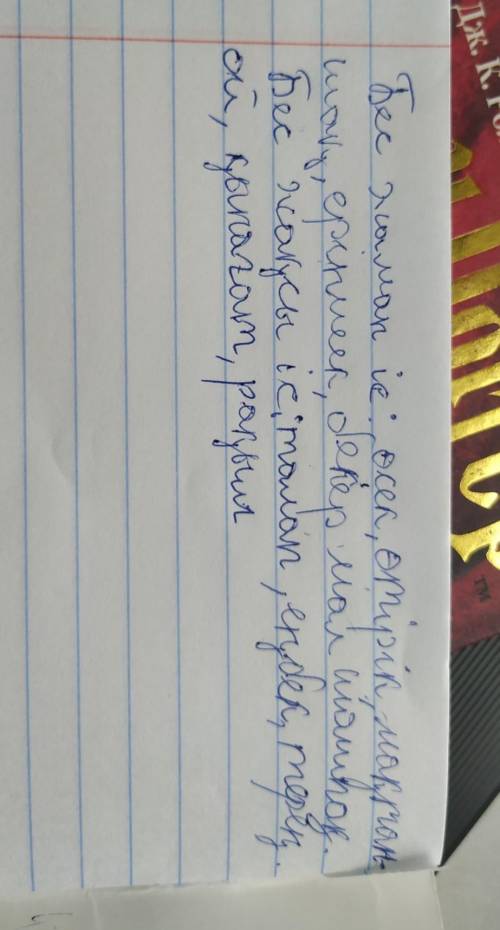 Бес жаман іс: өсек, өтірік, мақтан-
шақ, еріншек, бекер мал шашпақ.
Бес жақсы іс: талап, еңбек, терең
ой, қанағат, рақым
Дж. К. Ро